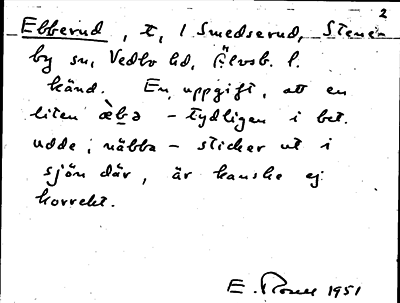 2
Ebberud, t, i Smedserud, Stene-
by sn, Vedbo hd, Älvsb. l.
känd. En uppgift, att en
liten æ̀bə - tydligen i bet.
udde, näbba - sticker ut i
sjön där, är kanske ej
korrekt.
E. 1951